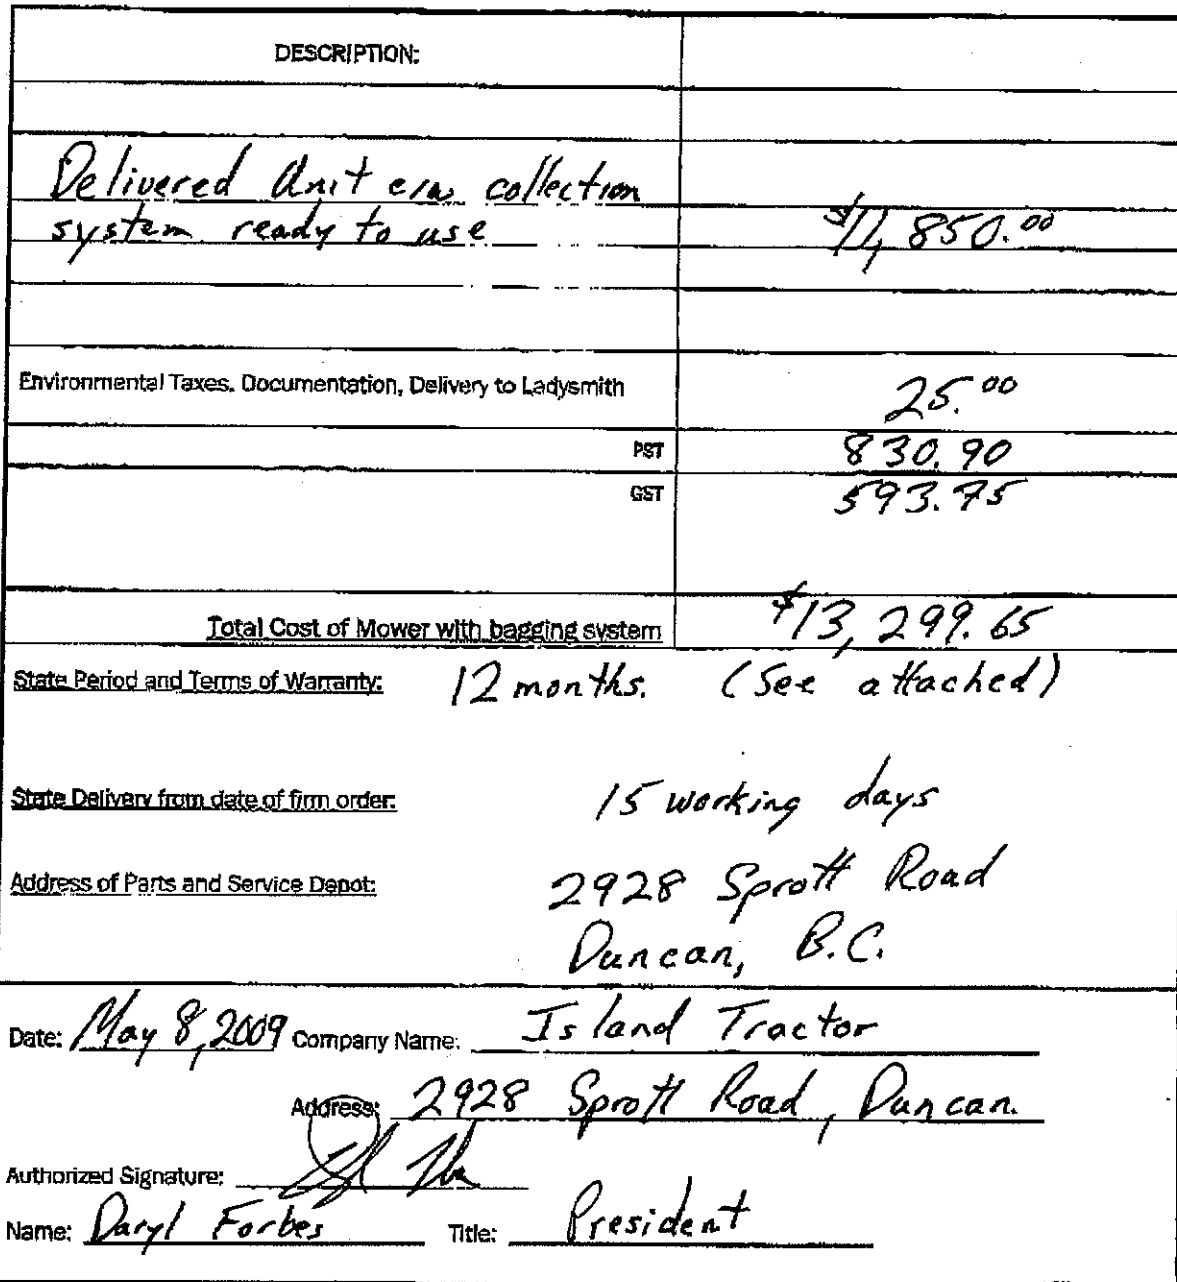 DESCRIPTION:
Delivered Unit c/w collection
system ready to use $11,850.00
Environmental Taxes. Documentation, Delivery to Ladysmith 25.00
PST 830.90
GST 593.75
Total Cost of Mower with bagging system $13,299.65
State Period and Terms of Warranty: 12 months. (See attached)
State Delivery from date of firm order: 15 working days
Address of Parts and Service Depot: 2928 Sprott Road
Duncan, B.C.
Date: May 8, 2009 Company Name: Island Tractor
Address: 2928 Sprott Road, Duncan.
Authorized Signature:
Name: Daryl Forbes Title: President